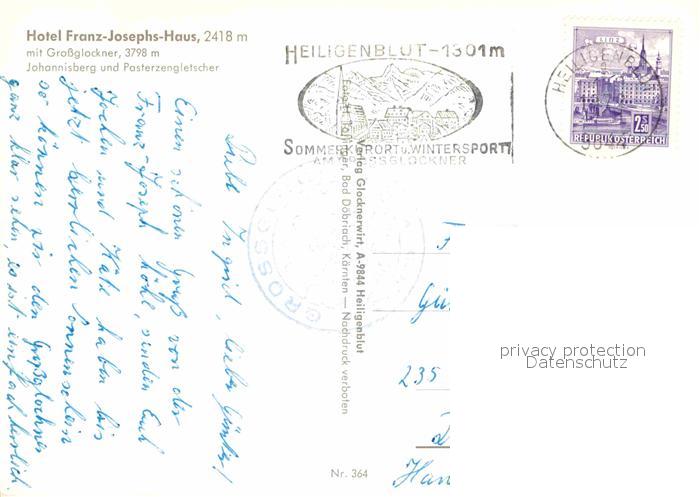 Hotel Franz-Josephs-Haus, 2418 m
mit Großglockner, 3798 m
Johannisberg und Pasterzengletscher
HEILIGENBLUT-1301m
SOMMERKURORT u. WINTERSPORT
AM GROSSGLOCKNER
LINZ
2.50 S
REPUBLIK ÖSTERREICH
HEILIGENBLUT
Liebe Ingrid, lieber Günter!
Einen schönen Gruß von der
Franz-Joseph Höhe, senden Euch
Jochen und Käte haben bis
jetzt herrlichen Sonnenschein
so können wir den Großglockner
ganz klar sehen, es ist einfach herrlich.
Verlag Glocknerwirt, A-9844 Heiligenblut
Bad Döbriach, Kärnten — Nachdruck verboten
GROSSGL
F
Gü
235
Han
Nr. 364
privacy protection
Datenschutz